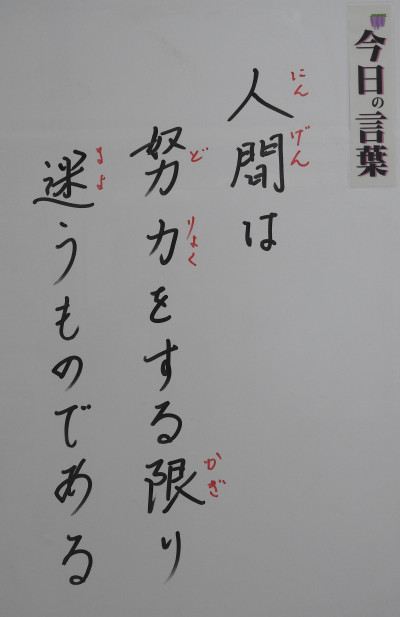 今日の言葉
人間は
にんげん
努力をする限り
どりょく
かぎ
迷うものである
まよ